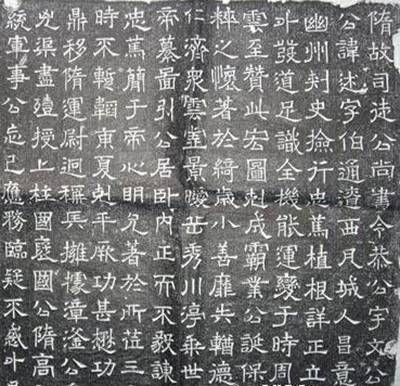 隋故司徒公尚書令恭公宇文公
公諱述字伯通遼西凡城人昌
幽州刾史撿行忠篤植根詳正立
叶發道足識全機能運變于時周
雲至贊此宏圖剋成霸業公誕保
粹之懷著於綺歲小善靡失輶德
仁濟衆雲室景曖岳秀川亭乗世
帝纂圖引公居卧内正而不毅諫
忠篤簡于帝心明允著於所莅三
時不蹔韜東夏剋平厥功甚懋功
鼎移隋運尉迥稱兵擁據漳滏公
兇渠盡殪授上柱國襃國公隋高
統軍事公忘己應務臨疑不惑叶